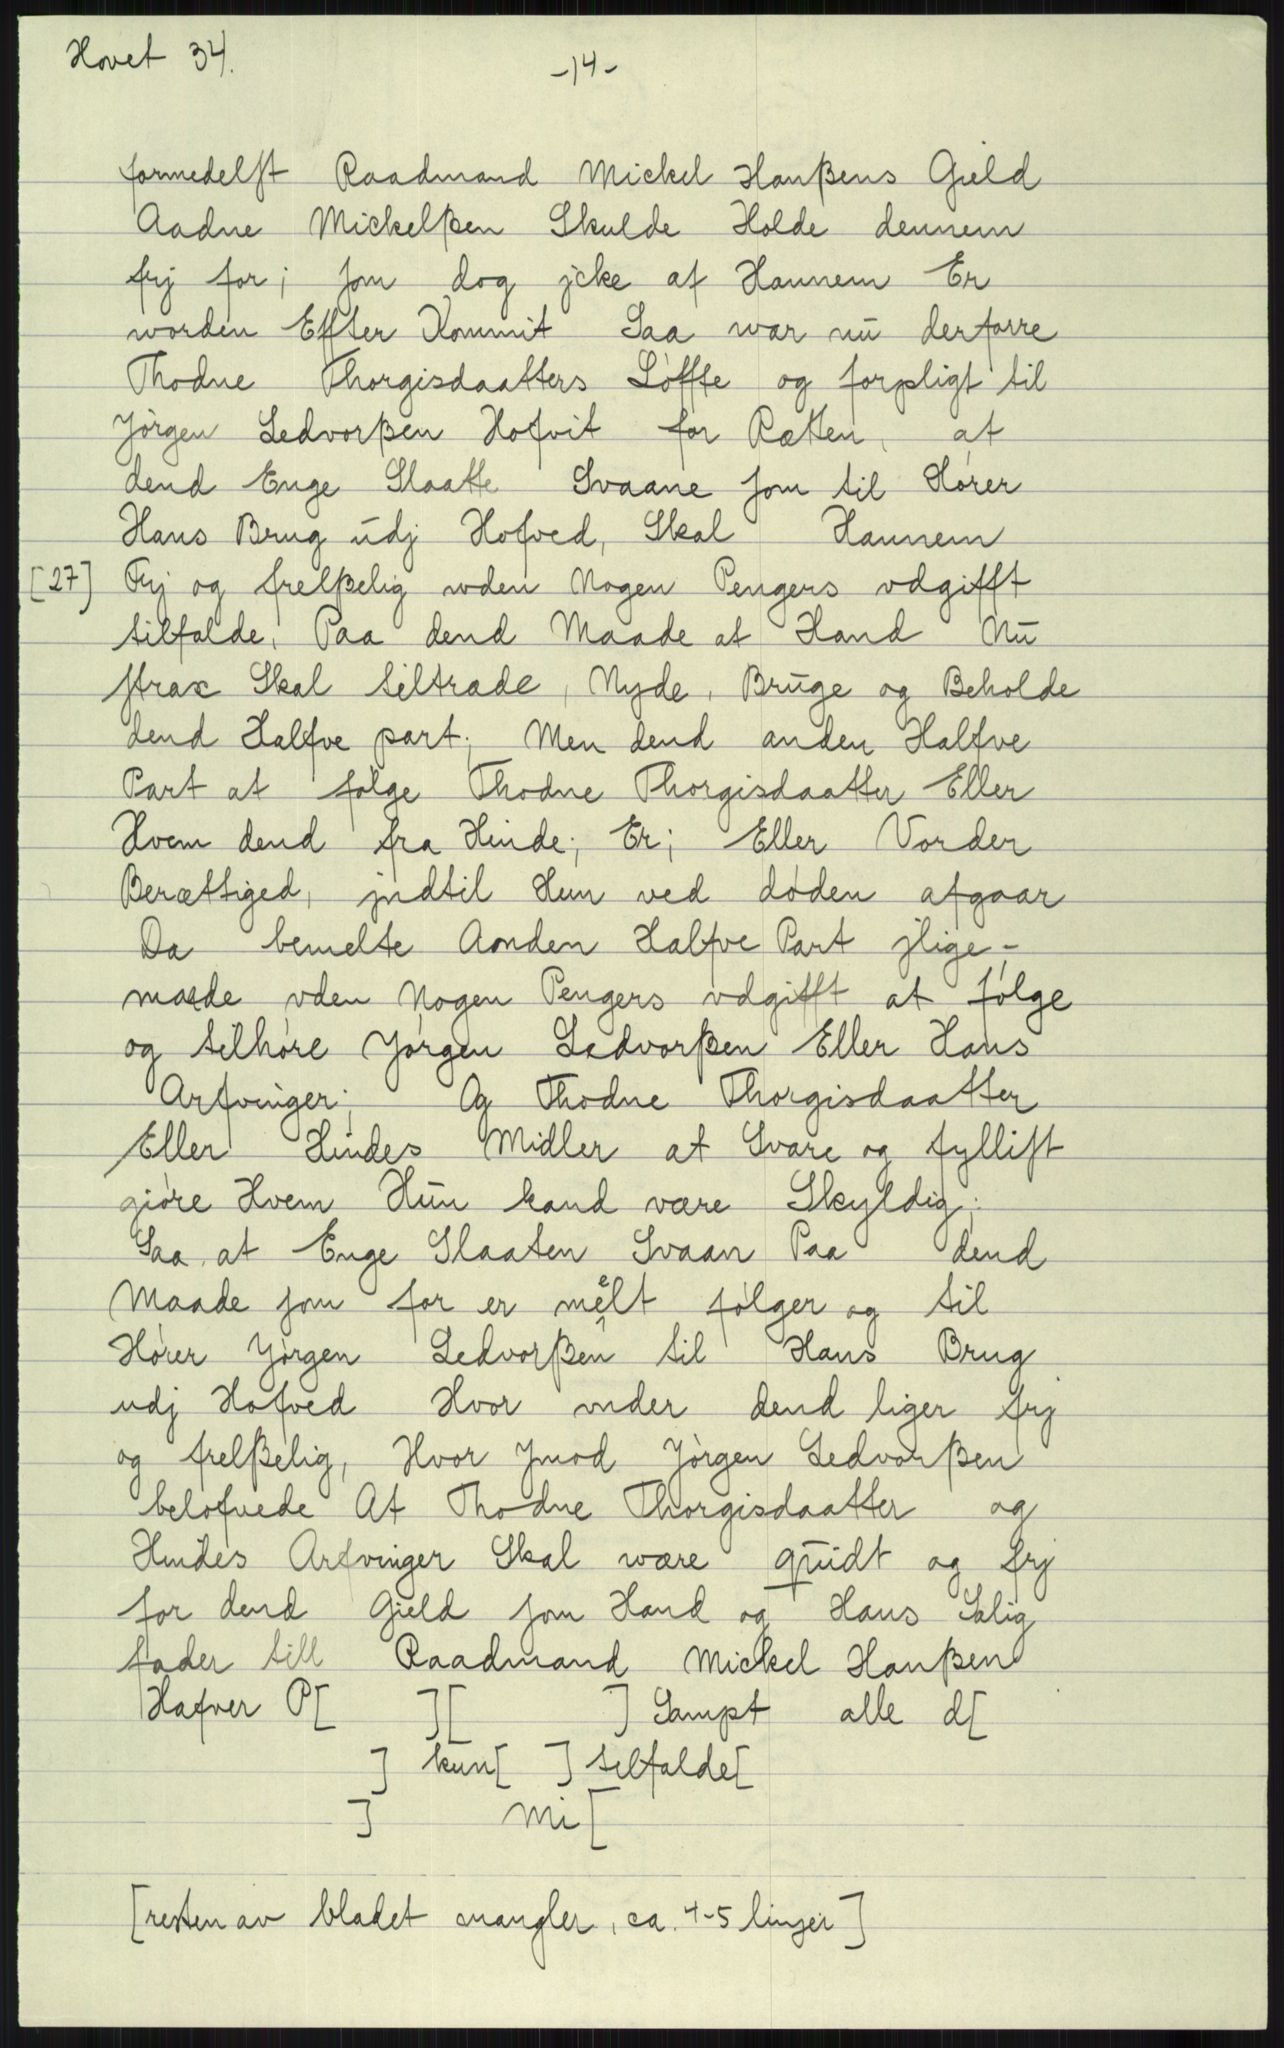 Hovet 34.
-14-
formedelst Raadmand Mickel Hanßens Gield
Aadne Mickelßen Skulde Holde dennem
frj for; som dog jcke af Hannem Er
worden Effter Kommit Saa war nu derforre
Thodne Thorgisdaatters Løffte og forpligt til
Jørgen Sedvorßen Hofvit for Rætten, at
dend Enge Slaatte Svaane som til Hører
Hans Brug udj Hofved, Skal Hannem
[27] Frj og frelßelig uden Nogen Pengers vdgifft
tilfalde, Paa dend Maade at Hand Nu
strax Skal tiltrade, Nyde, Bruge og Beholde
dend Halfve part; Men dend anden Halfve
Part at følge Thodne Thorgisdaatter Eller
Hvem dend fra Hinde; Er; Eller Vorder
Berættiged, jndtil Hun ved døden afgaar
Da bemelte Anden Halfve Part jlige-
maade vden Nogen Pengers vdgifft at følge
og tilhøre Jørgen Sedvorßen Eller Hans
Arfvinger; Og Thodne Thorgisdaatter
Eller Hindes Midler at Svare og fyllist
giøre Hvem Hun kand være Skyldig;
Saa at Enge Slaaten Svaan Paa dend
Maade som for er mêlt følger og til
Hører Jørgen Sedvorßen til Hans Brug
udj Hofved Hvor vnder dend liger frj
og frelßelig, Hvor Jmod Jørgen Sedvorßen
belofvede At Thodne Thorgisdaatter og
Hindes Arfvinger Skal være quidt og frj
for dend Gield som Hand og Hans Salig
fader till Raadmand Mickel Hanßen
Hafver P[ ][ ] Sampt alle d[
] kun[ ] tilfalde[
] Mi[
[resten av bladet mangler, ca. 4-5 linjer]